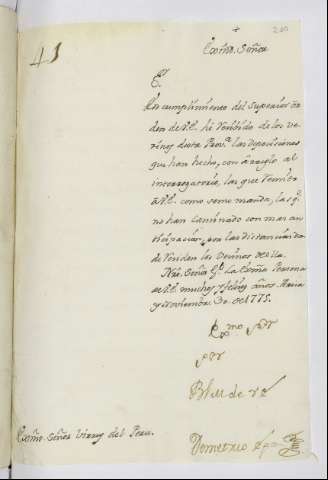 41
Exmo. Señor
E.
En cumplimiento del Superior ôr
den de V.E. hé recibido de los ve
cinos desta Prov.a las deposiciones
que han hecho, con arreglo al
interrogatorio, las que remito
a V.E. como seme manda, las q.e
no han caminado con mas an
ticipacion, por las distancias
de los Vecinos de ella.
Ntro. Señor g.e la Exma Persona
de V.E. muchos y felizes años.
y Noviembre 3 de 1775.
Exmo. Señor
Blm de V.E.
Exmo. Señor Virrey del Peru.
Demetrio